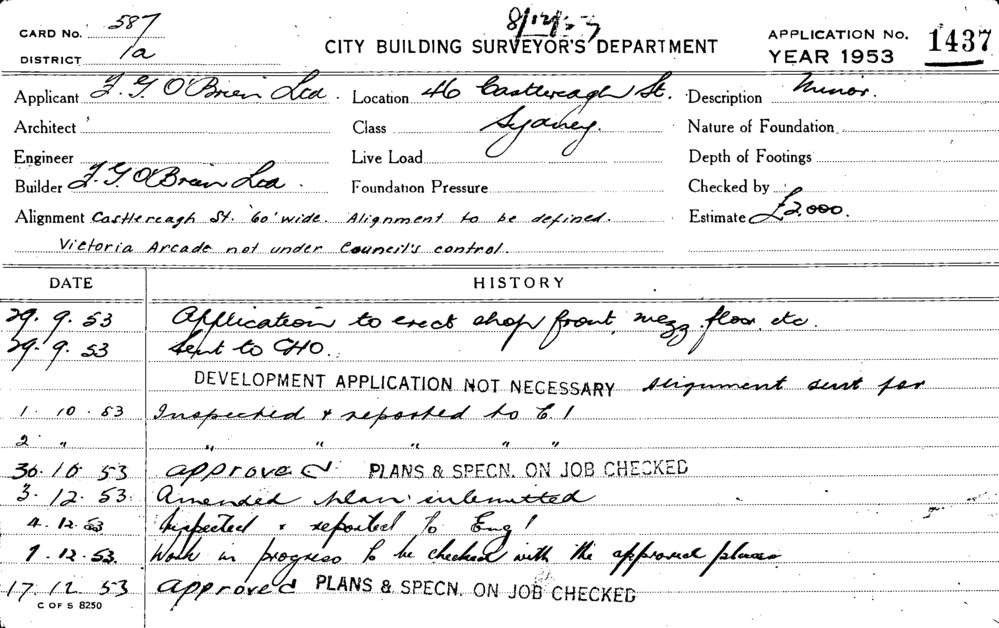 CARD No. 587
8/12/53
DISTRICT 1a
CITY BUILDING SURVEYOR'S DEPARTMENT
APPLICATION No. 1437
YEAR 1953
Applicant F. G. O'Brien Ltd. Location 46 Castlereagh St. Description Minor.
Architect Class Sydney. Nature of Foundation
Engineer Live Load Depth of Footings
Builder F. G. O'Brien Ltd. Foundation Pressure Checked by
Alignment Castlereagh St. 60' wide. Alignment to be defined. Estimate £2000.
Victoria Arcade not under Council's control.
DATE HISTORY
29. 9. 53 Application to erect shop front, mezz. floor, etc.
29. 9. 53 Sent to CHO.
DEVELOPMENT APPLICATION NOT NECESSARY Alignment sent for
1. 10. 53 Inspected & reported to E.
2 " " " " " "
30. 10. 53 approved PLANS & SPECN. ON JOB CHECKED
3. 12. 53 Amended plan submitted
4. 12. 53 Inspected & reported to Eng!
7. 12. 53. Work in progress to be checked with the approved plans
17. 12. 53 approved PLANS & SPECN. ON JOB CHECKED
C OF S 8250